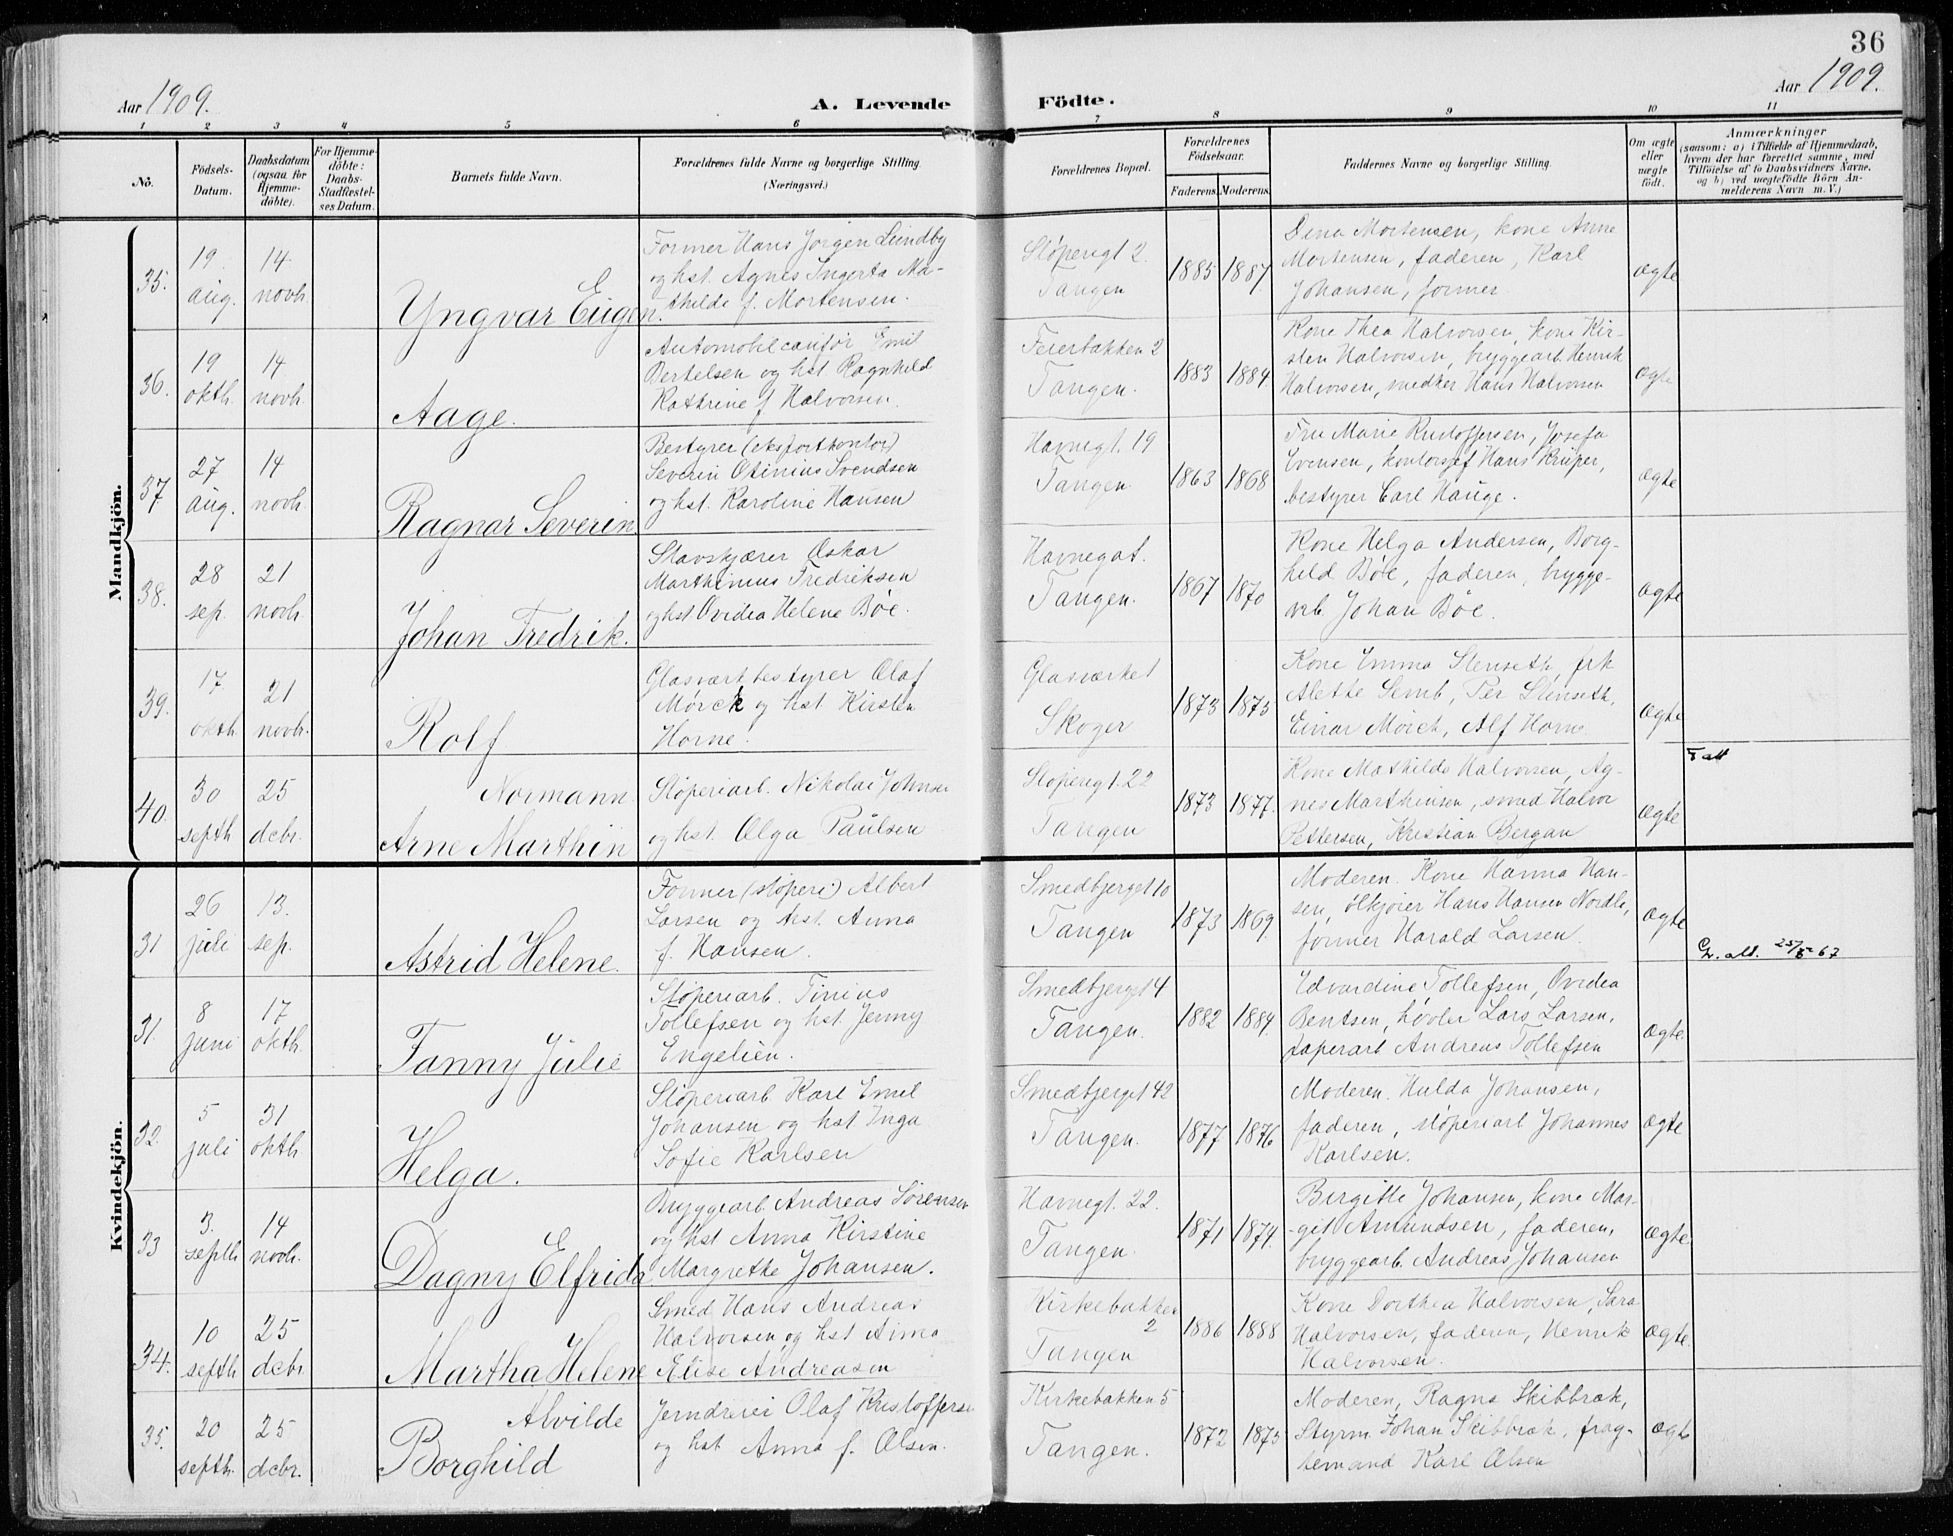 36
Aar 1909.
A. Levende
Födte.
Aar 1909.
1 2 3 4 5 6 7 8 9 10 11
No.
Födsels-
Datum.
Daabsdatum
(ogsaa for
Hjemme-
döbte).
For Hjemme-
döbte:
Daabs-
Stadfæstel-
ses Datum.
Barnets fulde Navn.
Forældrenes fulde Navne og borgerlige Stilling.
(Næringsvei.)
Forældrenes Bopæl.
Forældrenes
Födselsaar.
Faderens.
Moderens.
Faddernes Navne og borgerlige Stilling.
Om ægte
eller
uægte
født.
Anmærkninger
(saasom: a) i Tilfælde af Hjemmedaab,
hvem der har forrettet samme, med
Tilföielse af to Daabsvidners Navne,
og b) ved uægtefödte Börn An-
melderens Navn m. V.)
Mandkjön.
35.
19
aug.
14
novbr.
Yngvar Eugen.
Former Hans Jørgen Lundby
og hst. Agnes Ingerta Ma-
thilde f. Mortensen.
Støperigt 2.
Tangen
1885
1887
Dina Mortensen, kone Anne
Mortensen, faderen, Karl
Johansen, former
ægte
36.
19
oktbr.
14
novbr.
Aage.
Automobilcaufør Emil
Bertelsen og hst Ragnhild
Kathrine f Halvorsen.
Feierbakken 2
Tangen.
1883
1884
Kone Thea Halvorsen, kone Kir-
sten Halvorsen, bryggearb Henrik
Halvorsen, snedker Hans Halvorsen
ægte
37
27
aug.
14
novbr.
Ragnar Severin.
Bestyrer (eksportkontor)
Severin Otinius Svendsen
og hst. Karoline Hansen
Havnegt. 19
Tangen
1863
1868
Fru Marie Kristoffersen, Josefa
Evensen, kontorsjef Hans Krüper,
bestyrer Carl Hauge.
ægte
38.
28
sep.
21
novbr.
Johan Fredrik.
Stavskjærer Oskar
Marthinius Fredriksen
og hst Ovidia Helene Bøe.
Havnegat.
Tangen.
1867
1870
Kone Helga Andersen, Borg-
hild Bøe, faderen, brygge-
arb Johan Bøe.
ægte
39.
17
oktbr.
21
novbr.
Rolf
Glasværkbestyrer Olaf
Mørck og hst Kirsten
Horne.
Glasværket
Skoger
1873
1875
Kone Emma Stenseth, frk
Alette Semb, Per Stenseth,
Einar Mørch, Alf Horne
ægte
40.
30
septbr
25
dcbr.
Normann
Arne Marthin
Støperiarb. Nikolai Johnsen
og hst. Olga Paulsen
Støperigt. 22
Tangen
1873
1877.
Kone Mathilde Halvorsen, Ag-
nes Marthinsen, smed Halvor
Pettersen, Kristian Bergan
ægte
F att
Kvindekjön.
31
26
juli
13.
sep.
Astrid Helene.
Former (støperi) Albert
Larsen og hst. Anna
f. Hansen.
Smedbjerget 10
Tangen
1873
1869.
Moderen. Kone Hanna Han-
sen, ølkjører Hans Hansen Nordli,
former Harald Larsen
ægte
att. 25/5-67
31.
8
juni
17
oktbr.
Fanny Julie
Støperiarb. Tinius
Tollefsen og hst. Jenny
Engelien.
Smedbjerget 4
Tangen.
1882
1884.
Edvardine Tollefsen, Ovidia
Bentsen, høvler Lars Larsen,
papirarb Andreas Tollefsen
ægte.
32.
5
juli
31
oktbr
Helga.
Støperiarb Karl Emil
Johansen og hst Inga
Sofie Karlsen
Smedbjerget 42
Tangen.
1877
1876
Moderen. Hulda Johansen,
faderen, støperiarb Johannes
Karlsen.
ægte
33
3.
septbr
14
novbr.
Dagny Elfrida
Bryggearb. Andreas Sørensen
og hst Anna Kirstine
Margrethe Johansen.
Havnegt. 22.
Tangen.
1871
1874.
Birgitte Johansen, kone Mar-
git Amundsen, faderen,
bryggearb. Andreas Johansen
ægte
34.
10
septbr
25
dcbr
Martha Helene
Smed Hans Andreas
Halvorsen og hst Anna
Elise Andreasen
Kirkebakken
2
Tangen
1886
1888
Kone Dorthea Halvorsen, Sara
Halvorsen, faderen, Henrik
Halvorsen.
ægte.
35.
20
septbr.
25
dcbr.
Alvilde
Borghild
Jerndreier Olaf Kristoffersen
og hst Anna f. Olsen.
Kirkebakken 5
Tangen.
1872
1875
Moderen, Ragna Skibbræk,
Styrm. Johan Skibbræk, frag-
temand Karl Olsen
ægte